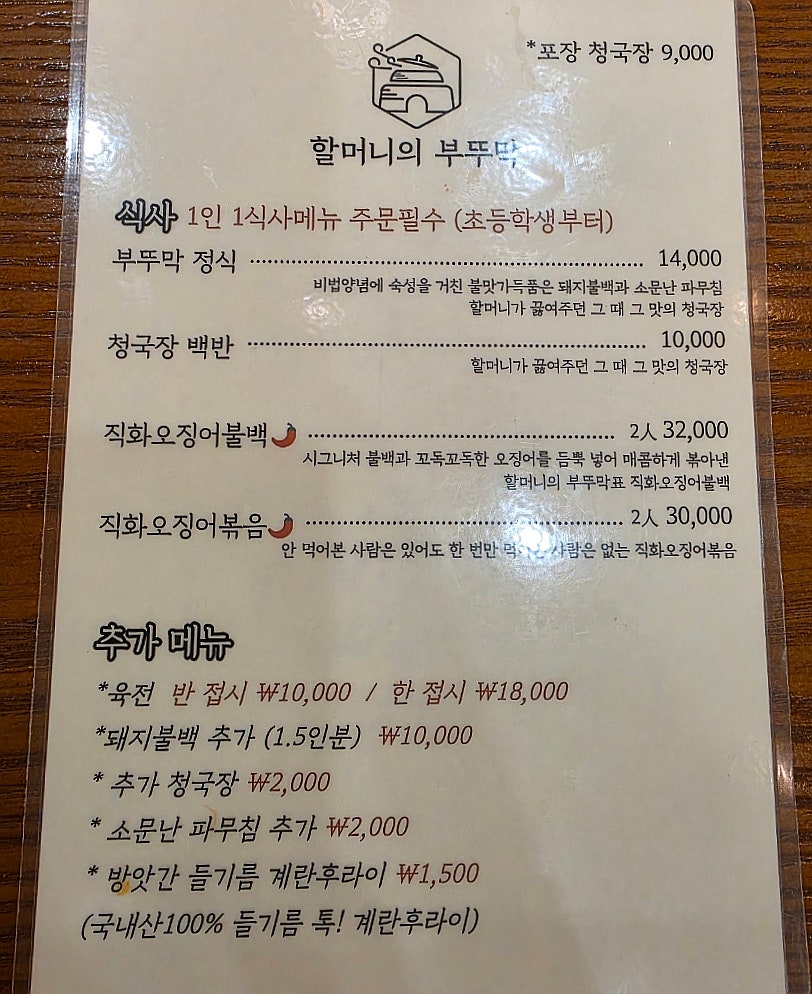 *포장 청국장 9,000
할머니의 부뚜막
식사 1인 1식사메뉴 주문필수 (초등학생부터)
부뚜막 정식 ........................................................ 14,000
비법양념에 숙성을 거친 불맛가득품은 돼지불백과 소문난 파무침
할머니가 끓여주던 그 때 그 맛의 청국장
청국장 백반 ........................................................ 10,000
할머니가 끓여주던 그 때 그 맛의 청국장
직화오징어불백🌶 ............................................ 2人 32,000
시그니처 불백과 꼬독꼬독한 오징어를 듬뿍 넣어 매콤하게 볶아낸
할머니의 부뚜막표 직화오징어불백
직화오징어볶음🌶 ............................................ 2人 30,000
안 먹어본 사람은 있어도 한 번만 사람은 없는 직화오징어볶음
추가 메뉴
*육전 반 접시 ₩10,000 / 한 접시 ₩18,000
*돼지불백 추가 (1.5인분) ₩10,000
* 추가 청국장 ₩2,000
* 소문난 파무침 추가 ₩2,000
* 방앗간 들기름 계란후라이 ₩1,500
(국내산100% 들기름 톡! 계란후라이)